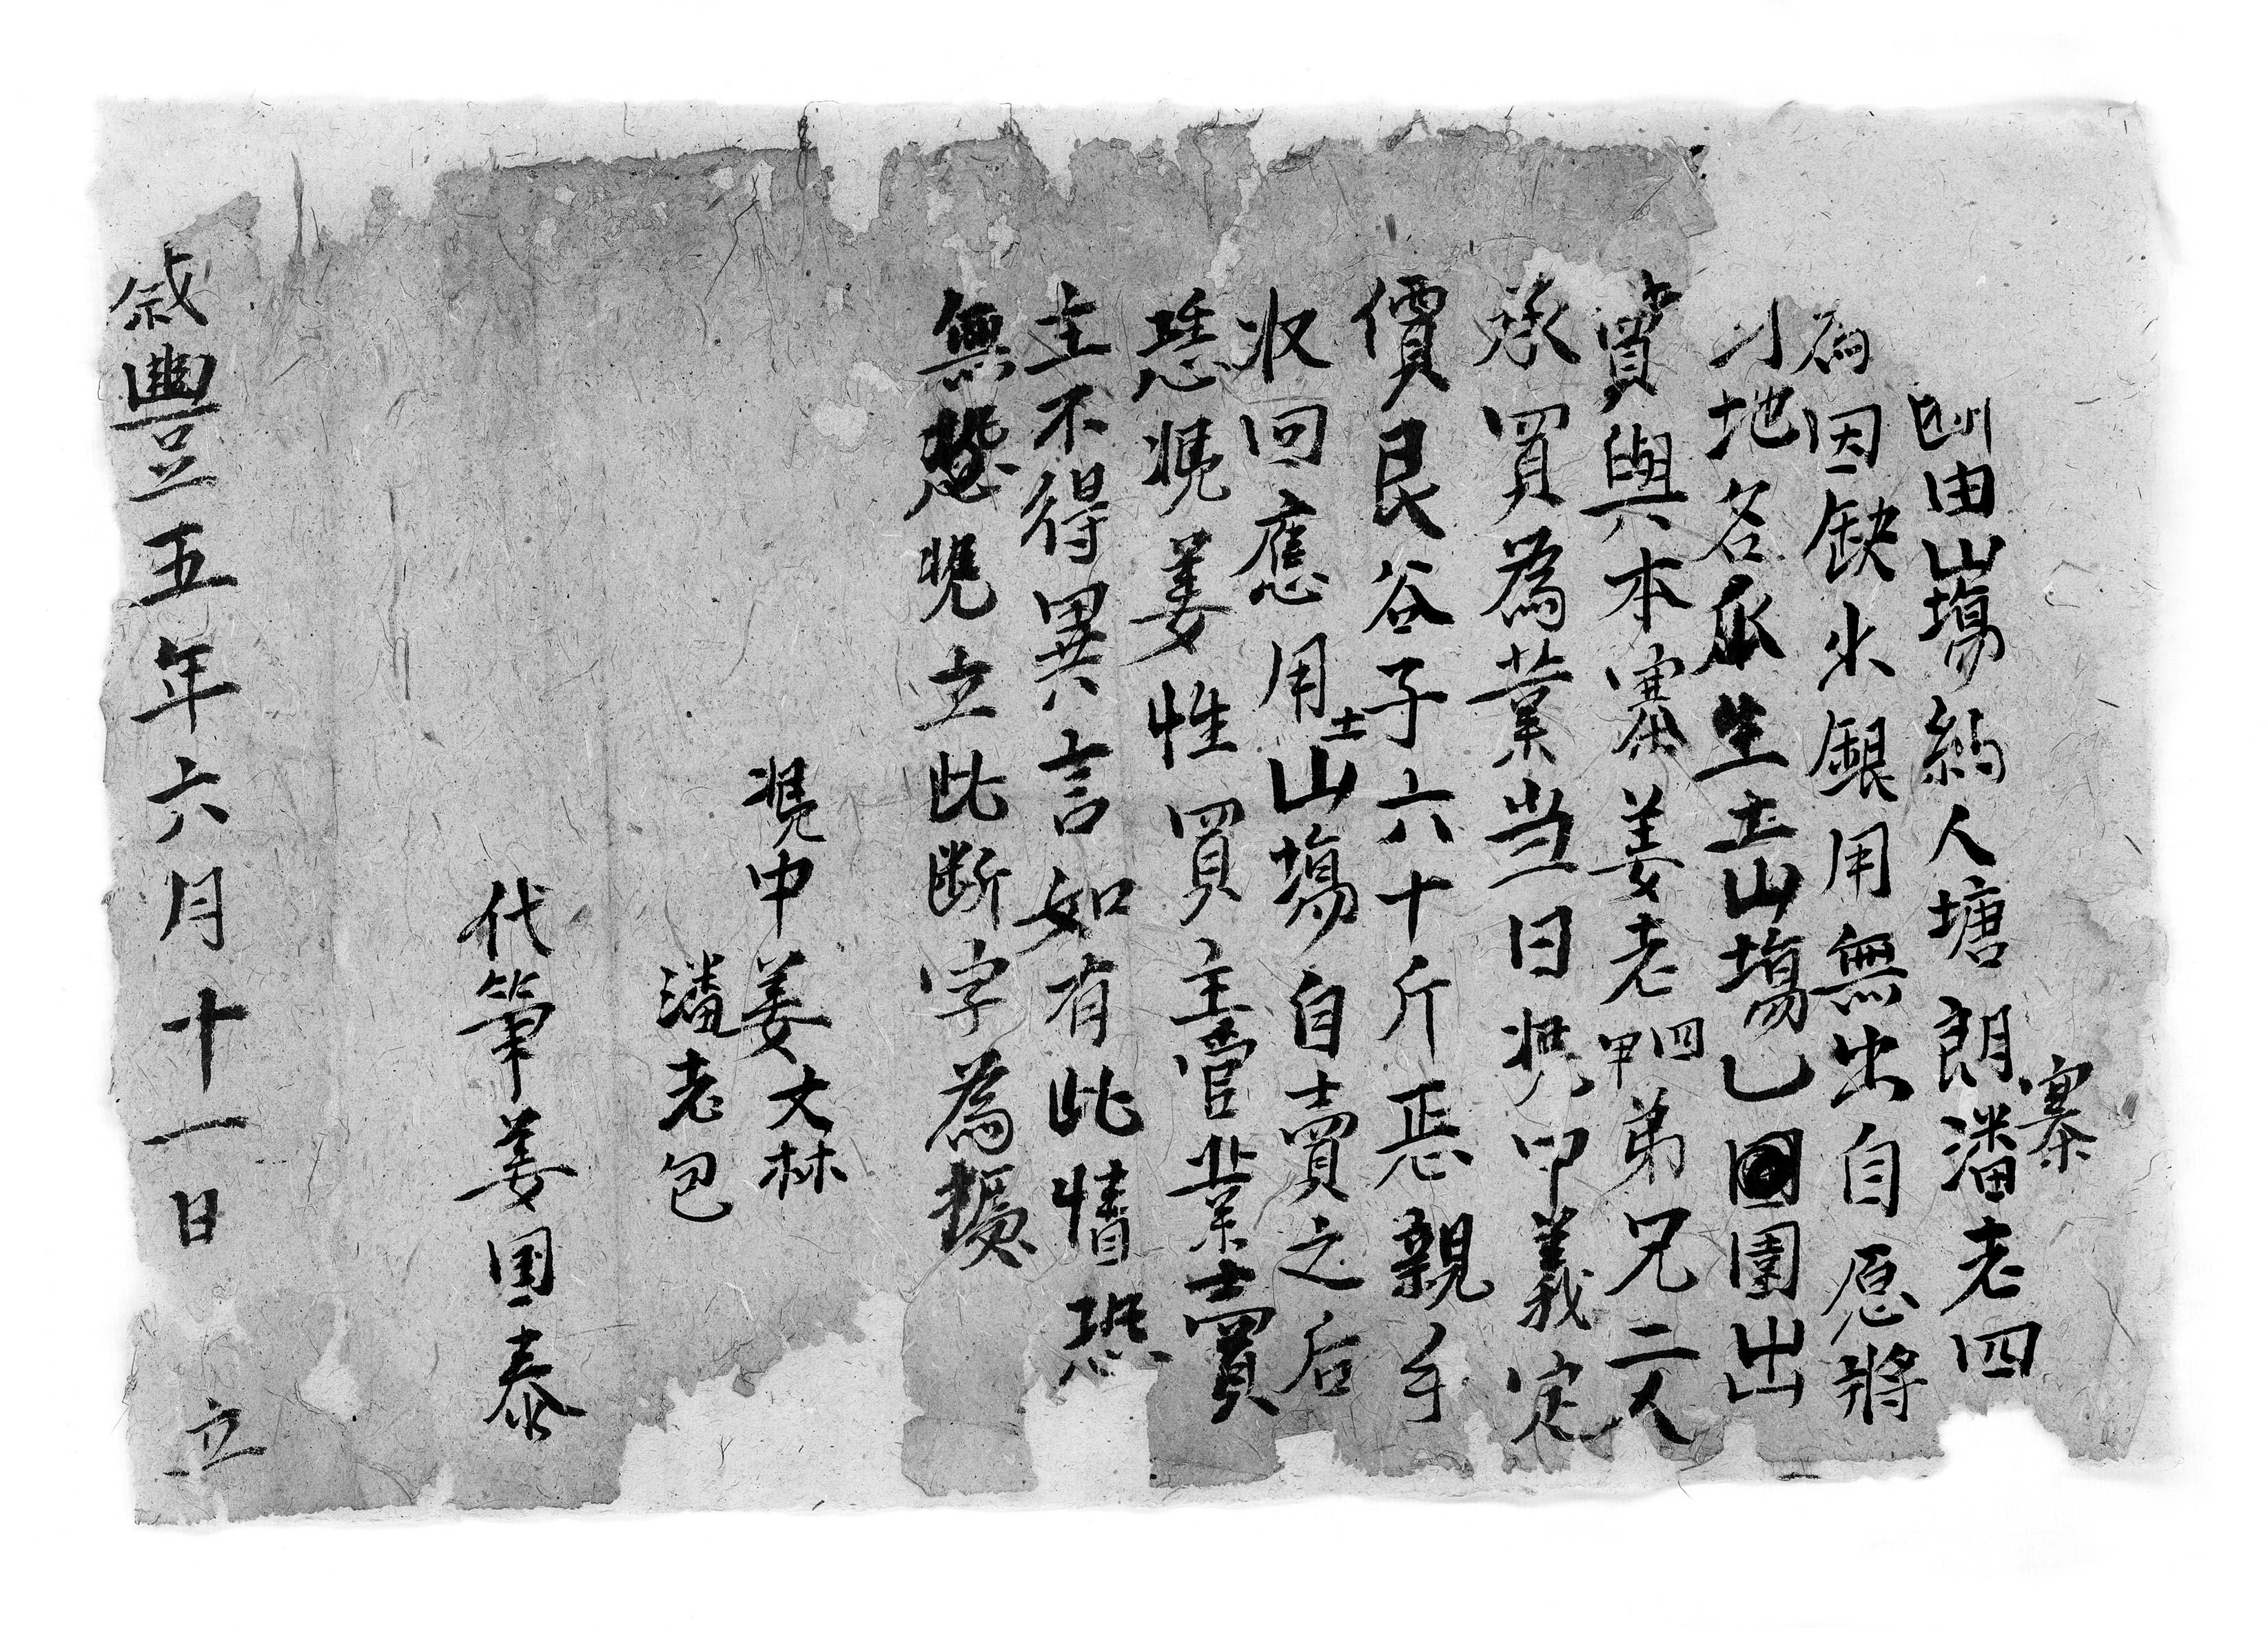 由山塲約人塘朗寨潘老四
為因缺少銀用無出自愿將
地名瓜生土山塲乙團出
賣與本寨姜老四甲弟兄二人
承買為業当日凭中義定
價艮谷子六十斤恁親手
收回應用土山塲自賣之后
恁凴姜性買主管業賣
主不得異言如有此情恐
無慿凴立此断字為據
凴中姜文林
潘老包
代筆姜国泰
咸豐五年六月十一日立